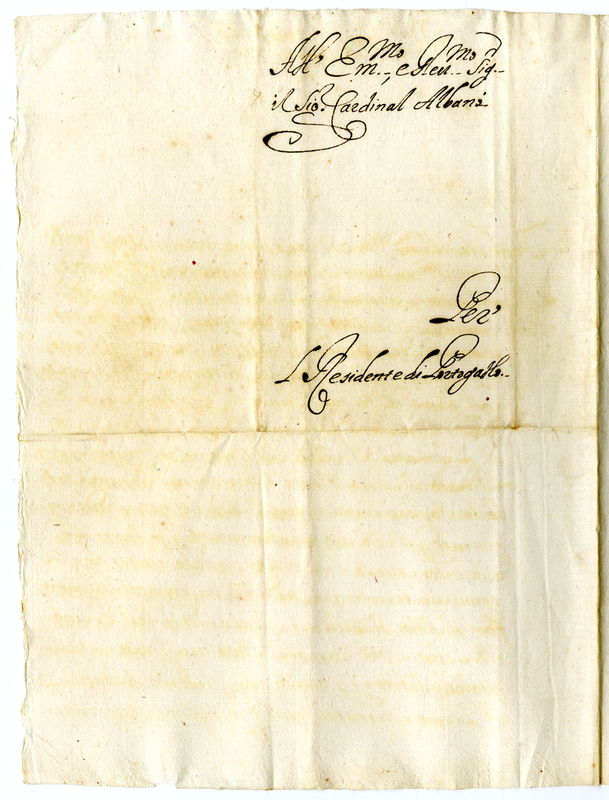 All' Em.mo e Reu.mo Sig.r
il Sig.r Cardinal Albani
Per
L Residente di Portogallo.